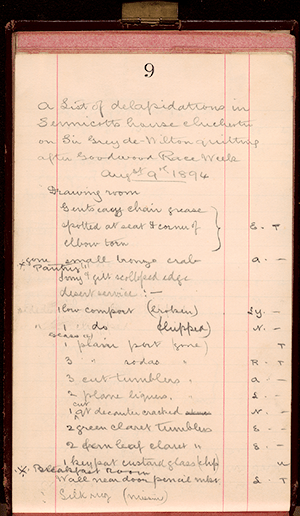 9
A List of delapidations in
Sennicotts house chichester
on Sir Grey de-Wilton quitting
after Goodwood Race Week
Augst 9th 1894
Drawing room
Gents easy chair grease
spotted at seat & corner of } E. T
elbow torn
x gone small bronze crab a. –
Pantry
gilt scolloped edge
desert service :—
1 low comport (broken) Ly. –
1 do (chipped) N. –
1 plain port gone) T
3 " sodas " R. T
3 cut tumblers " a –
2 plane liqurs. "
1 cut qt decanter cracked N. –
2 green claret tumblers E –
2 fern leaf claret " E –
1 key pat custard glass chip u
x Breakfast Room
Wall near door pencil mks T
Silk rug